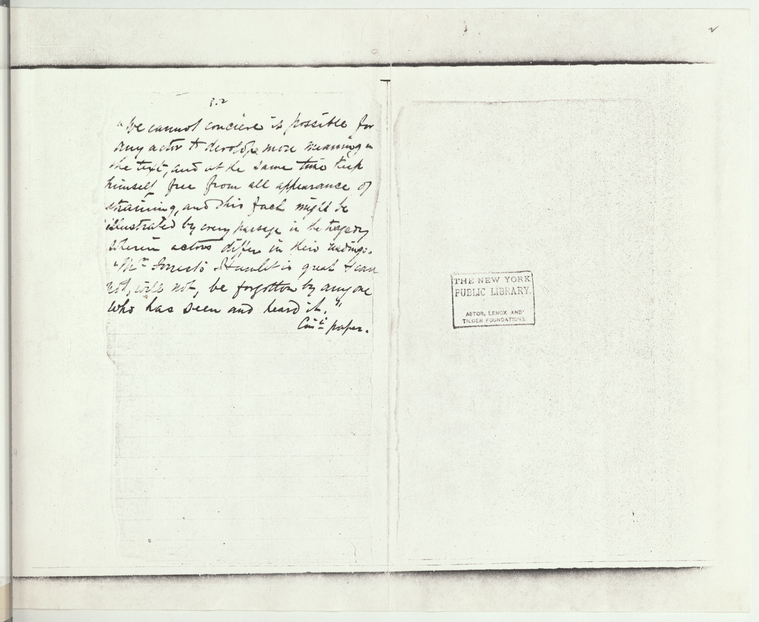 2
P. 2
"We cannot conciere is possible for
any actor to develop more meaning in
the text, and at the same time keep
himself free from all appearance of
straining, and this fact might be
illustrated by every passage in the tragedy
wherein actors differ in their readings.
"Mr. Forrest's Hamlet is great & can
not, will not, be forgotten by anyone
who has seen and heard it."
paper.
THE NEW YORK
PUBLIC LIBRARY.
ASTOR, LENOX AND
TILDEN FOUNDATIONS.